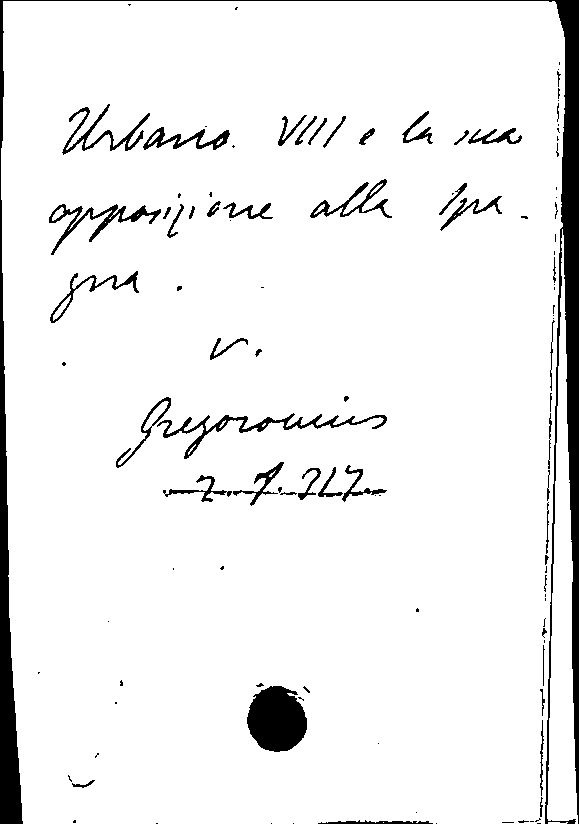 Urbano VIII e la sua
opposizione alla Spa-
gna.
v.
Gregorovius